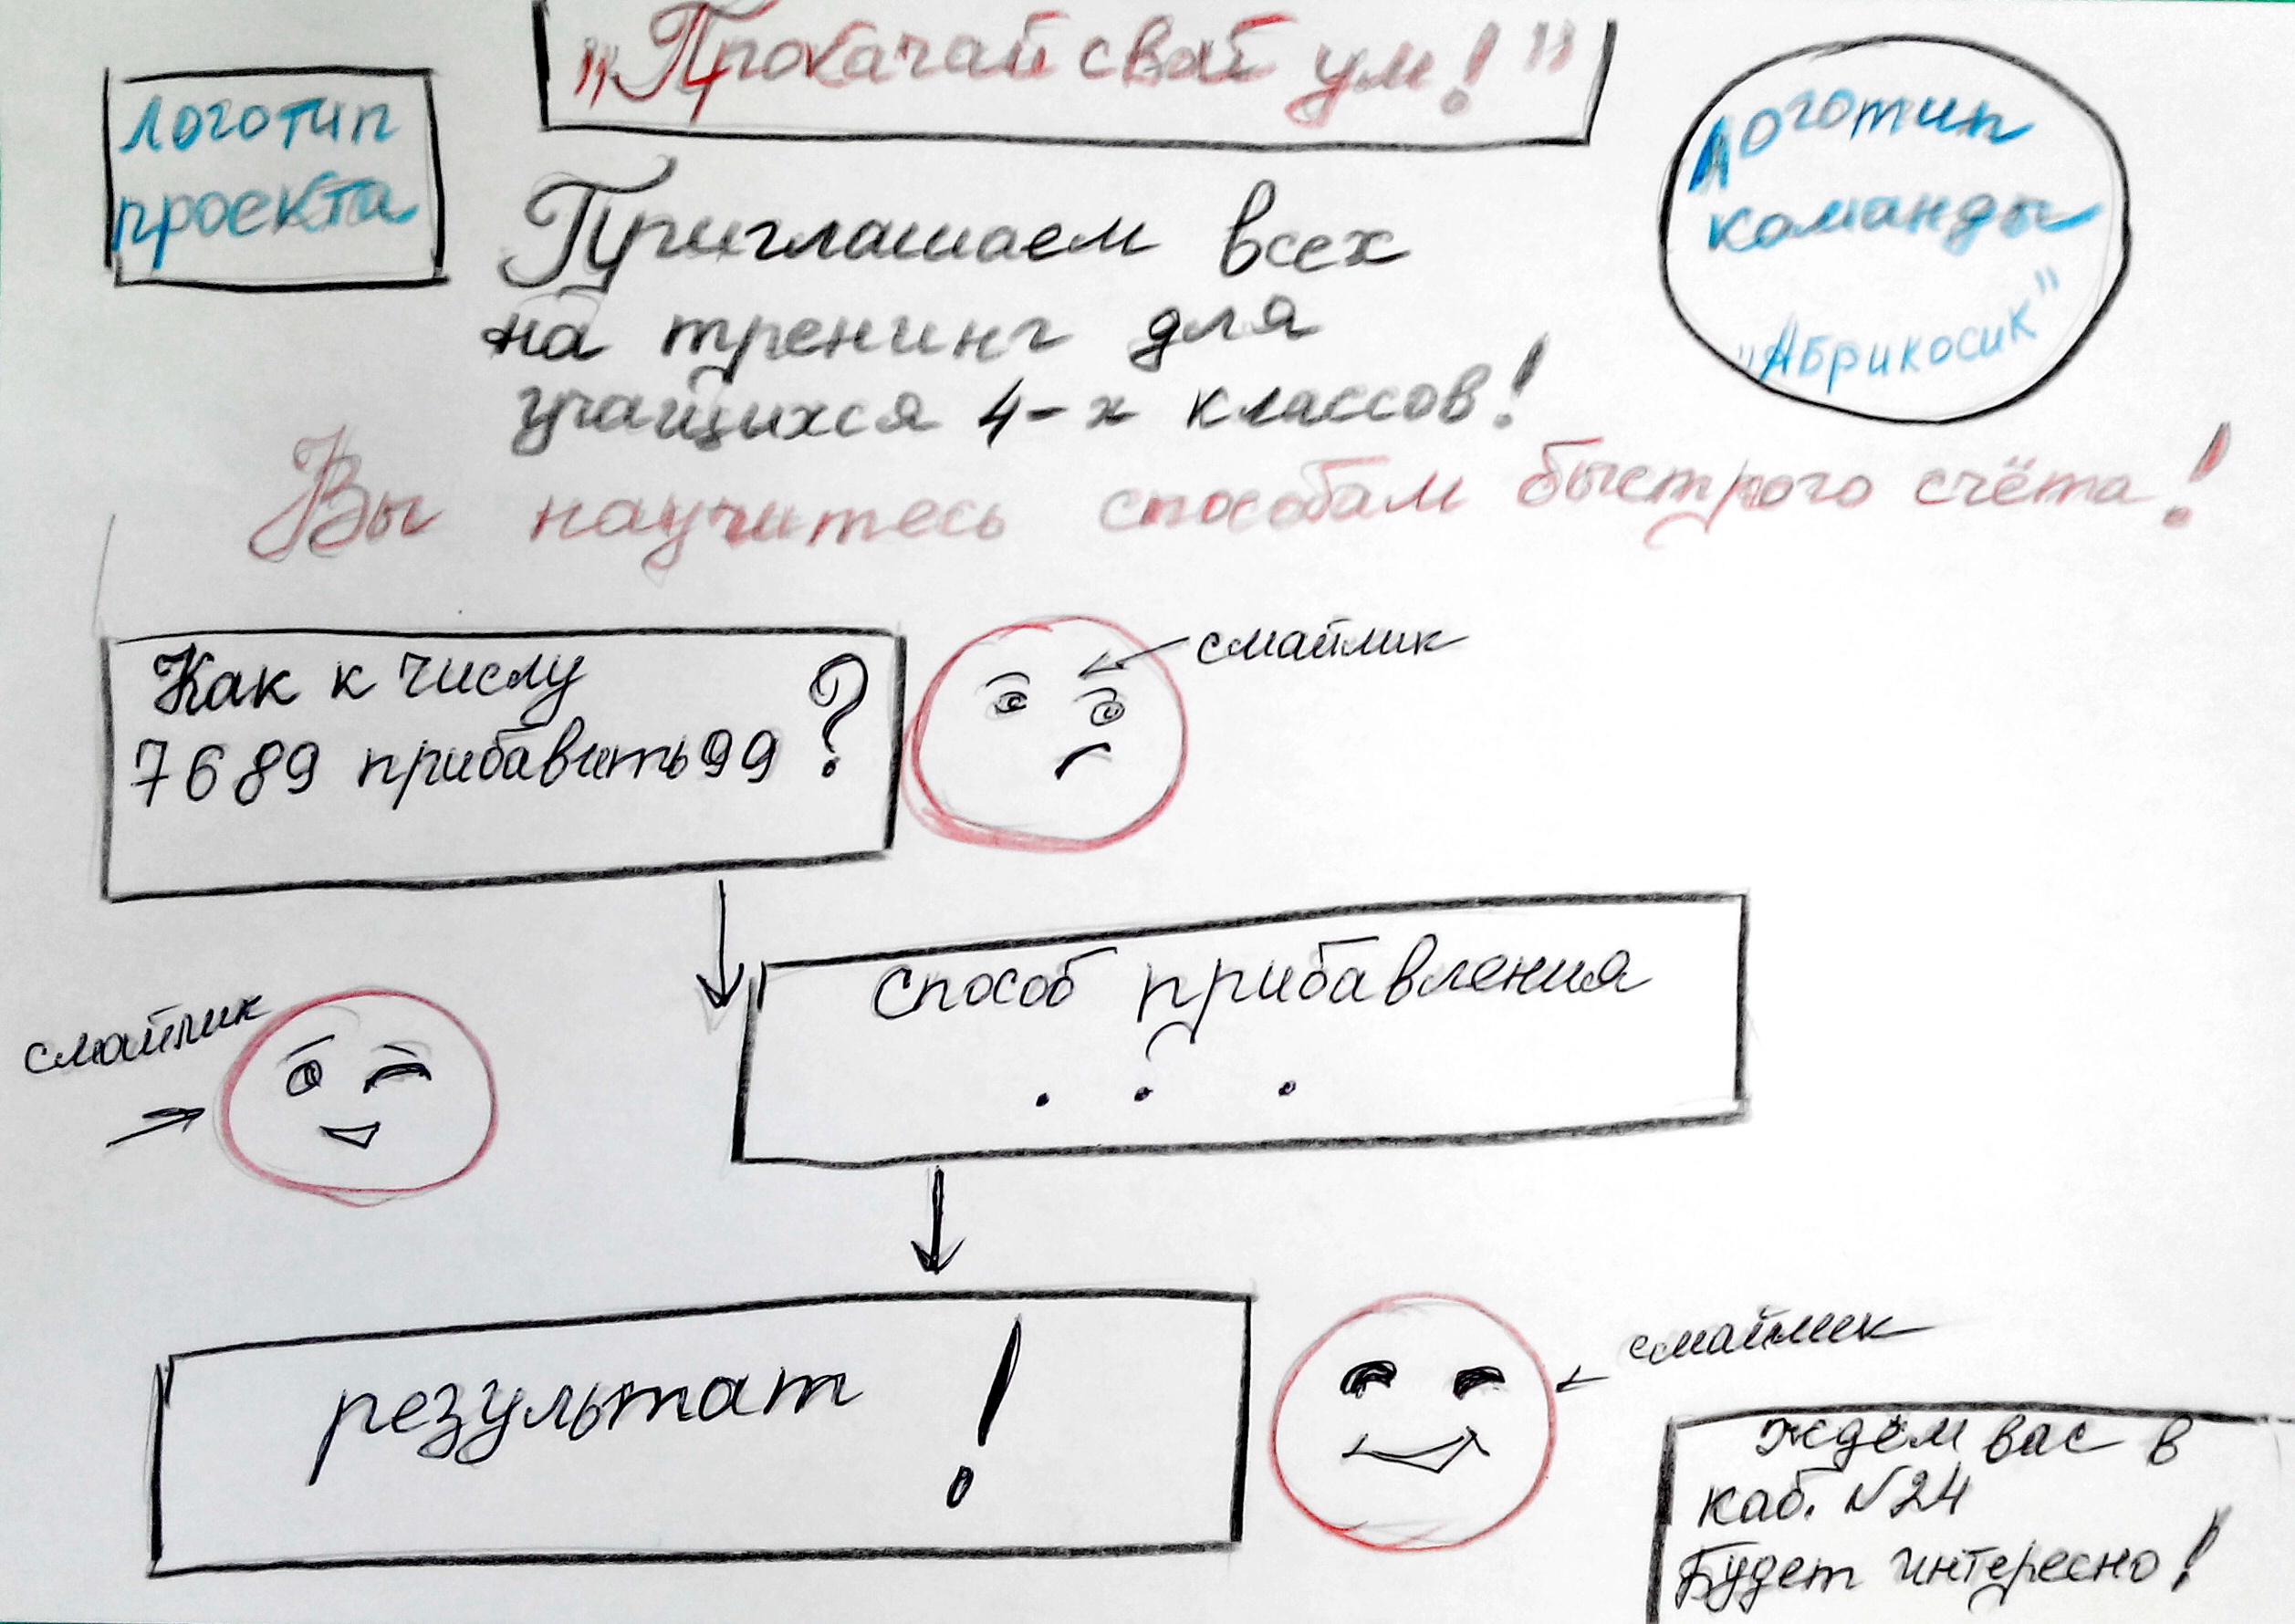 „Прокачай свой ум!"
логотип
проекта
Логотип
команды
"Абрикосик"
Приглашаем всех
на тренинг для
учащихся 4-х классов!
Вы научитесь способам быстрого счёта!
Как к числу
7689 прибавить 99 ?
смайлик
способ прибавления
. . .
смайлик
результат !
смайлик
ждём вас в
каб. №24
Будет интересно!